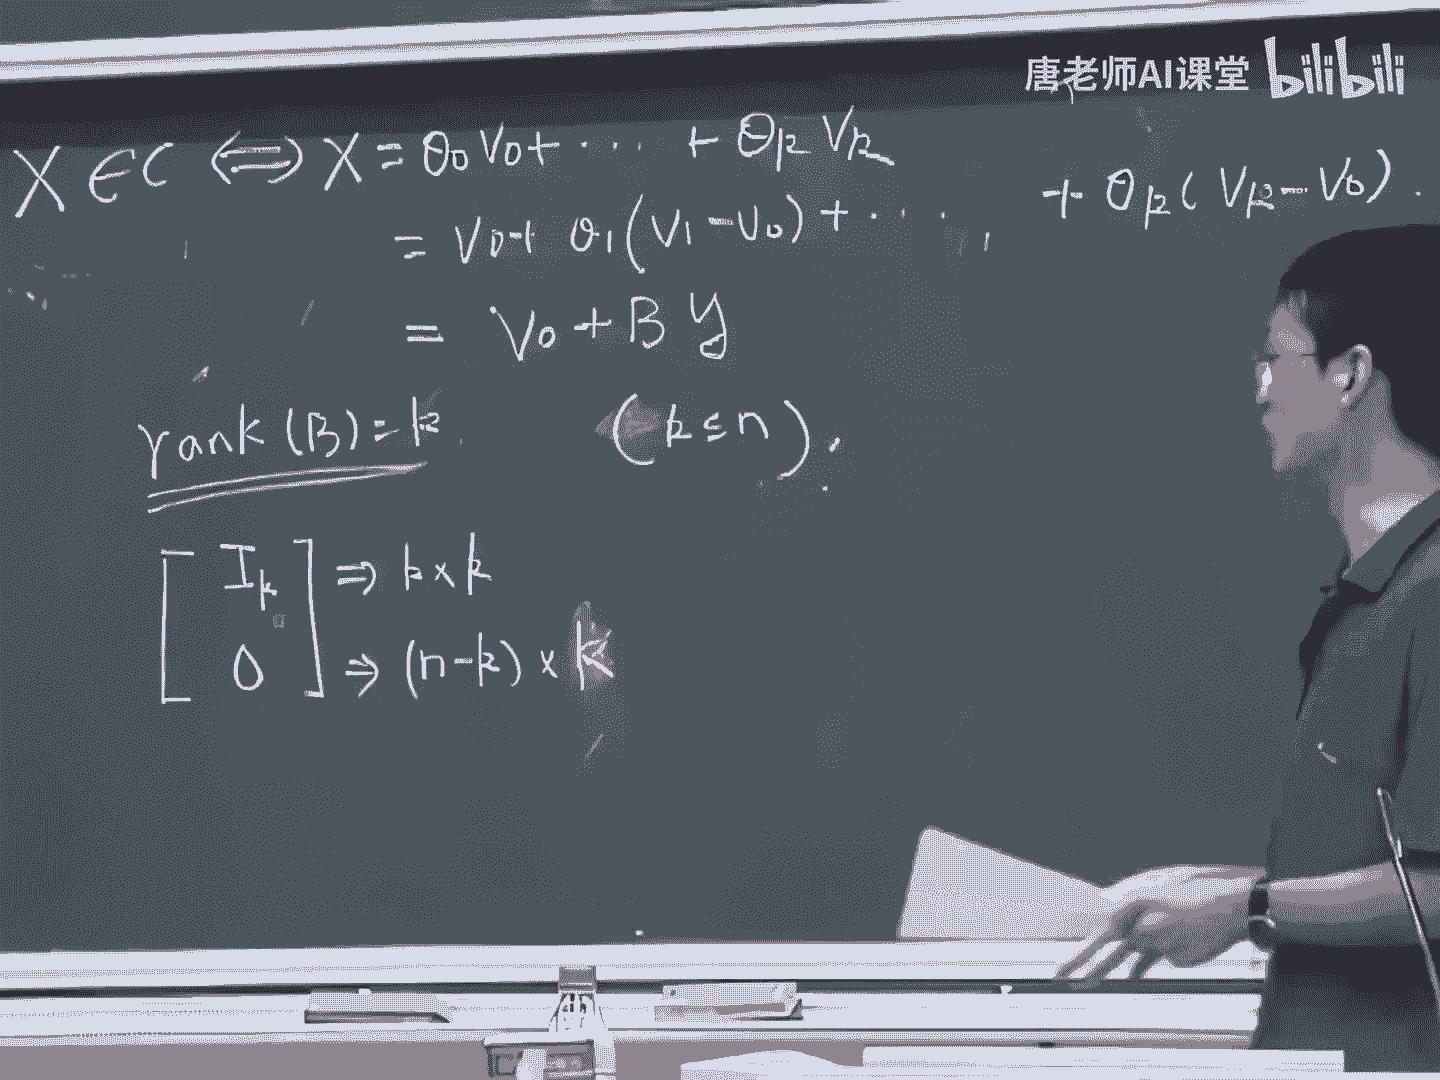 唐老师AI课堂 bilibili
X ∈ C ⟺ X = θ0 V0 + ··· + θk Vk
= V0 + θ1(V1 − V0) + ··· + θk(Vk − V0).
= V0 + B y
rank(B) = k (k ≤ n).
[ Ik ] ⇒ k × k
[ 0 ] ⇒ (n−k) × k